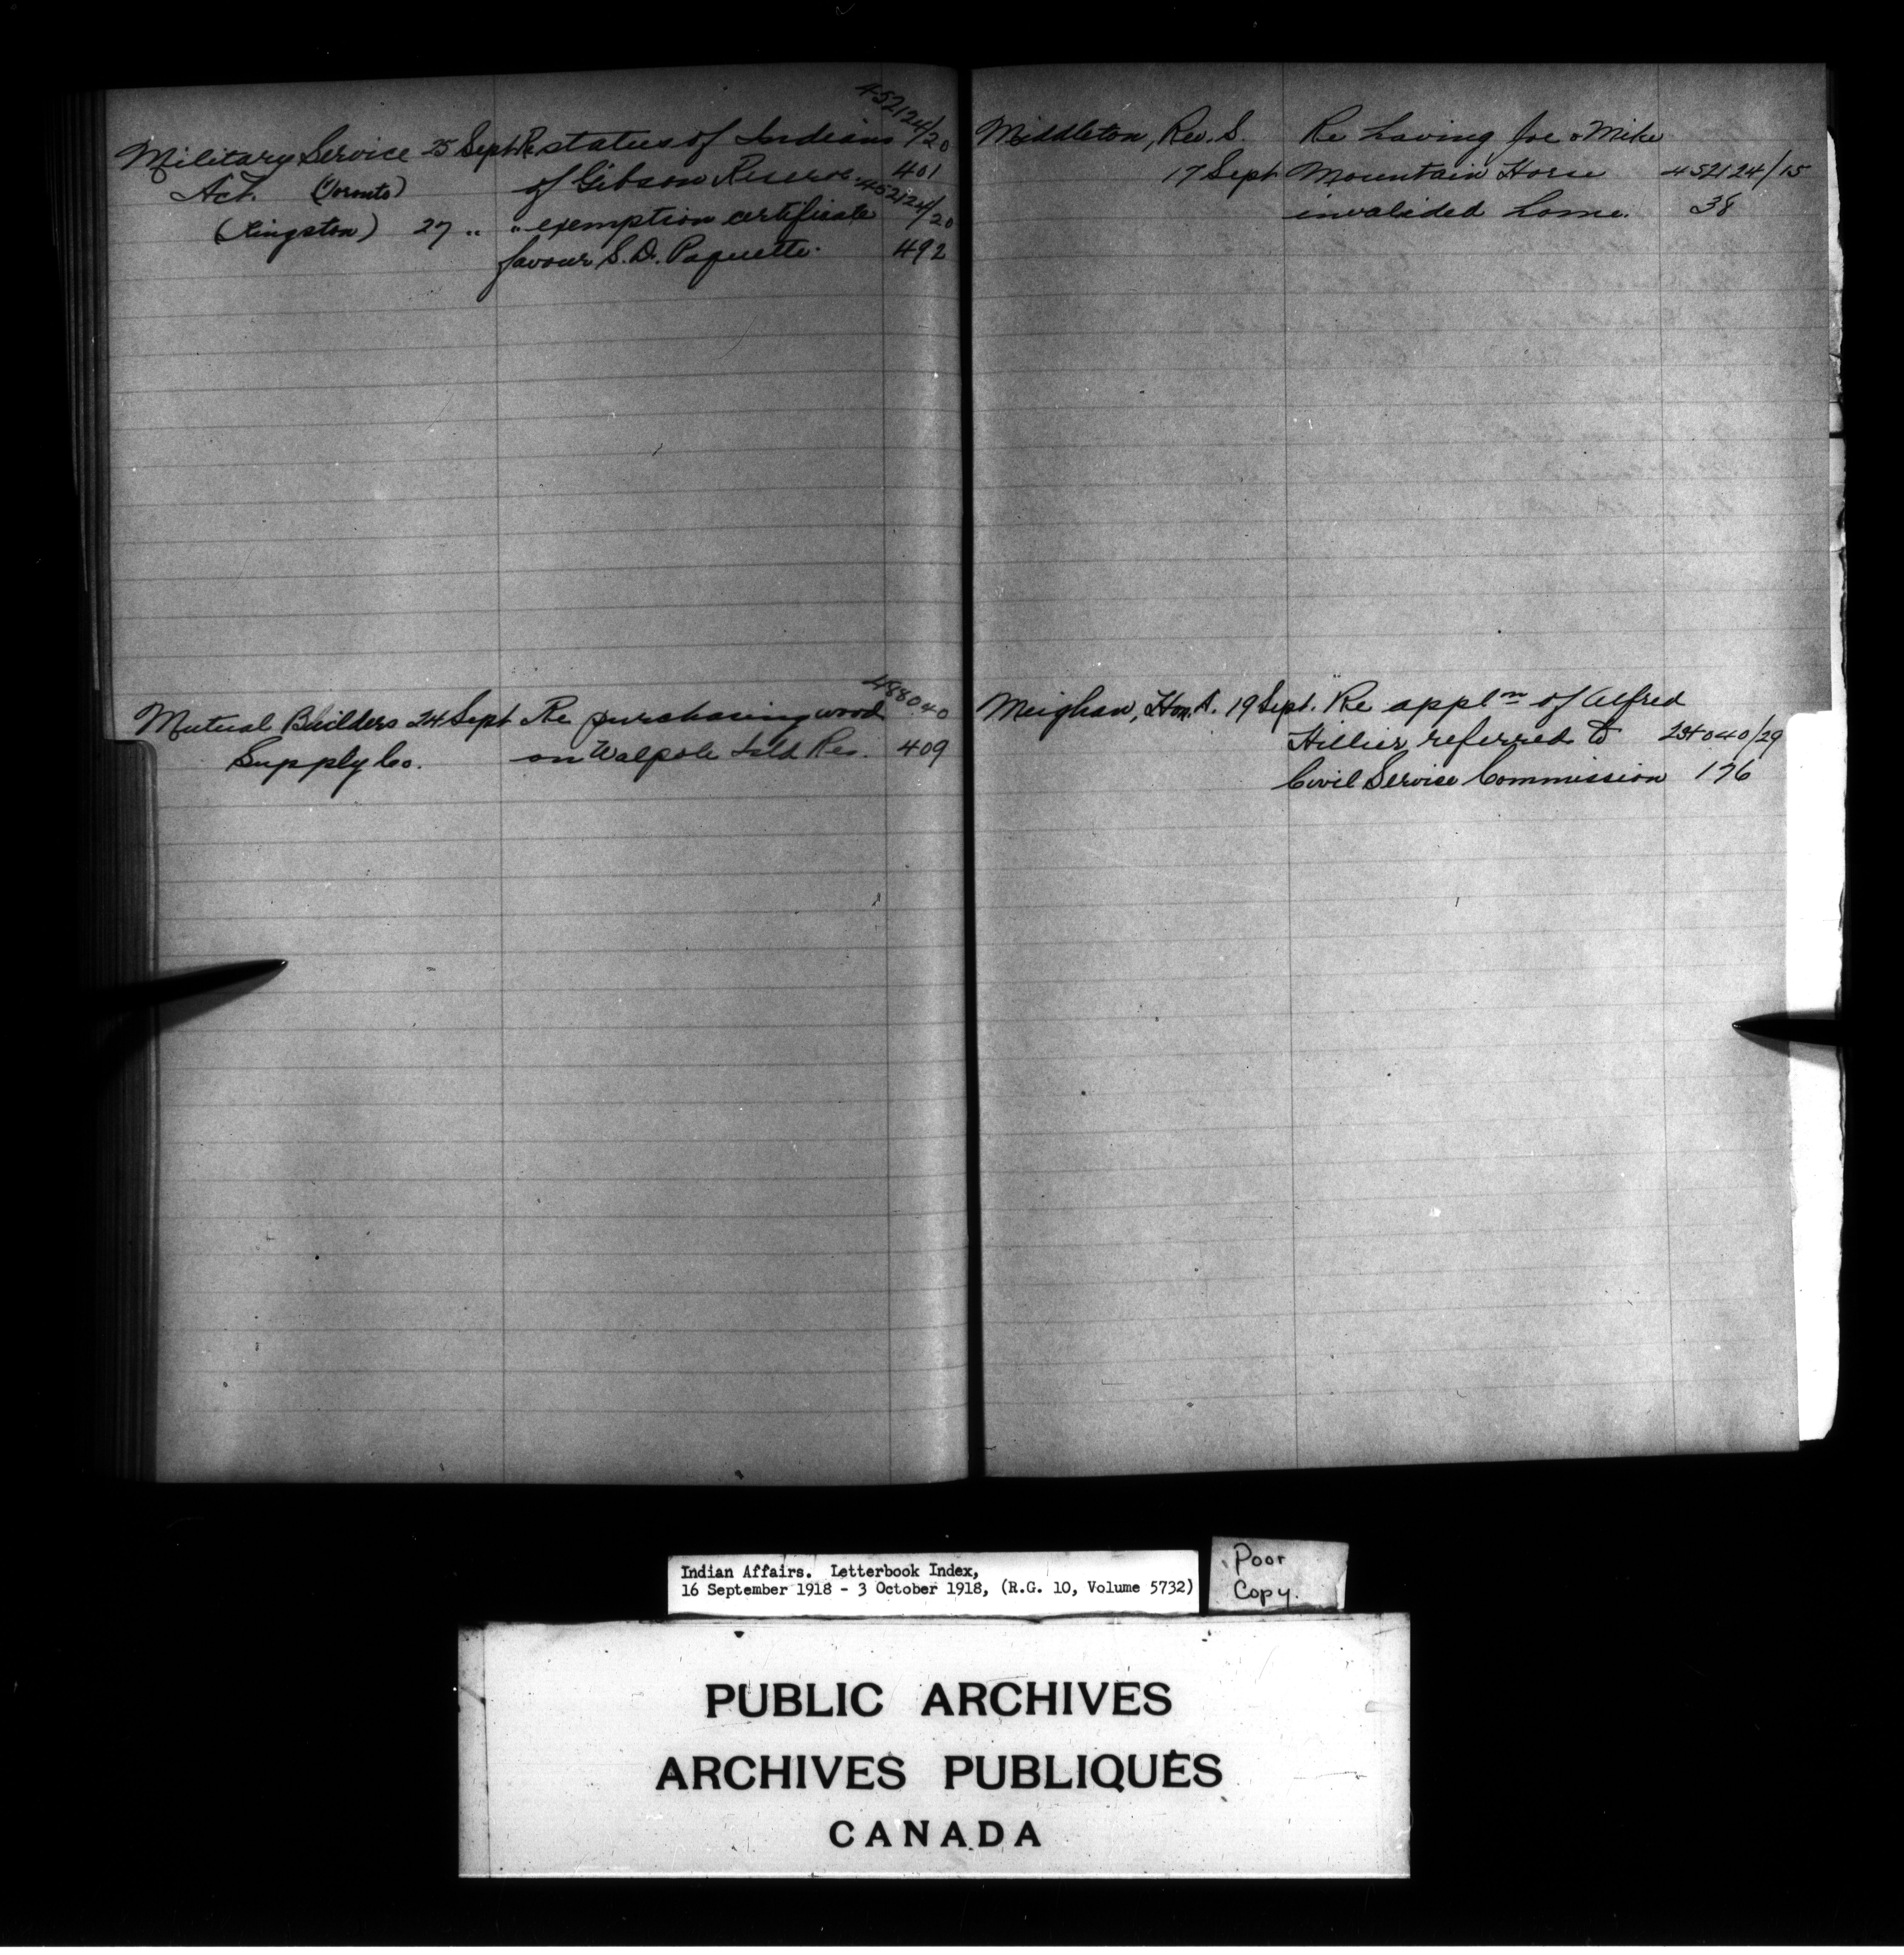 452124/20
Military Service 25 Sept Re status of Indians
Act. (Toronto) of Gibson Reserve 401
452124/20
(Kingston) 27 " " exemption certificate
favour S. D. Paquette. 492
488040
Mutual Builders 24 Sept Re purchasing wood
Supply Co. on Walpole Isld Res. 409
Middleton, Rev. S. Re having Joe & Mike
17 Sept Mountain Horse 452124/15
invalided home. 38
Meighan, Hon. A. 19 Sept. Re appln of Alfred
Hillier referred to 234040/29
Civil Service Commission 176
Indian Affairs. Letterbook Index,
16 September 1918 - 3 October 1918, (R.G. 10, Volume 5732)
Poor
Copy.
PUBLIC ARCHIVES
ARCHIVES PUBLIQUES
CANADA